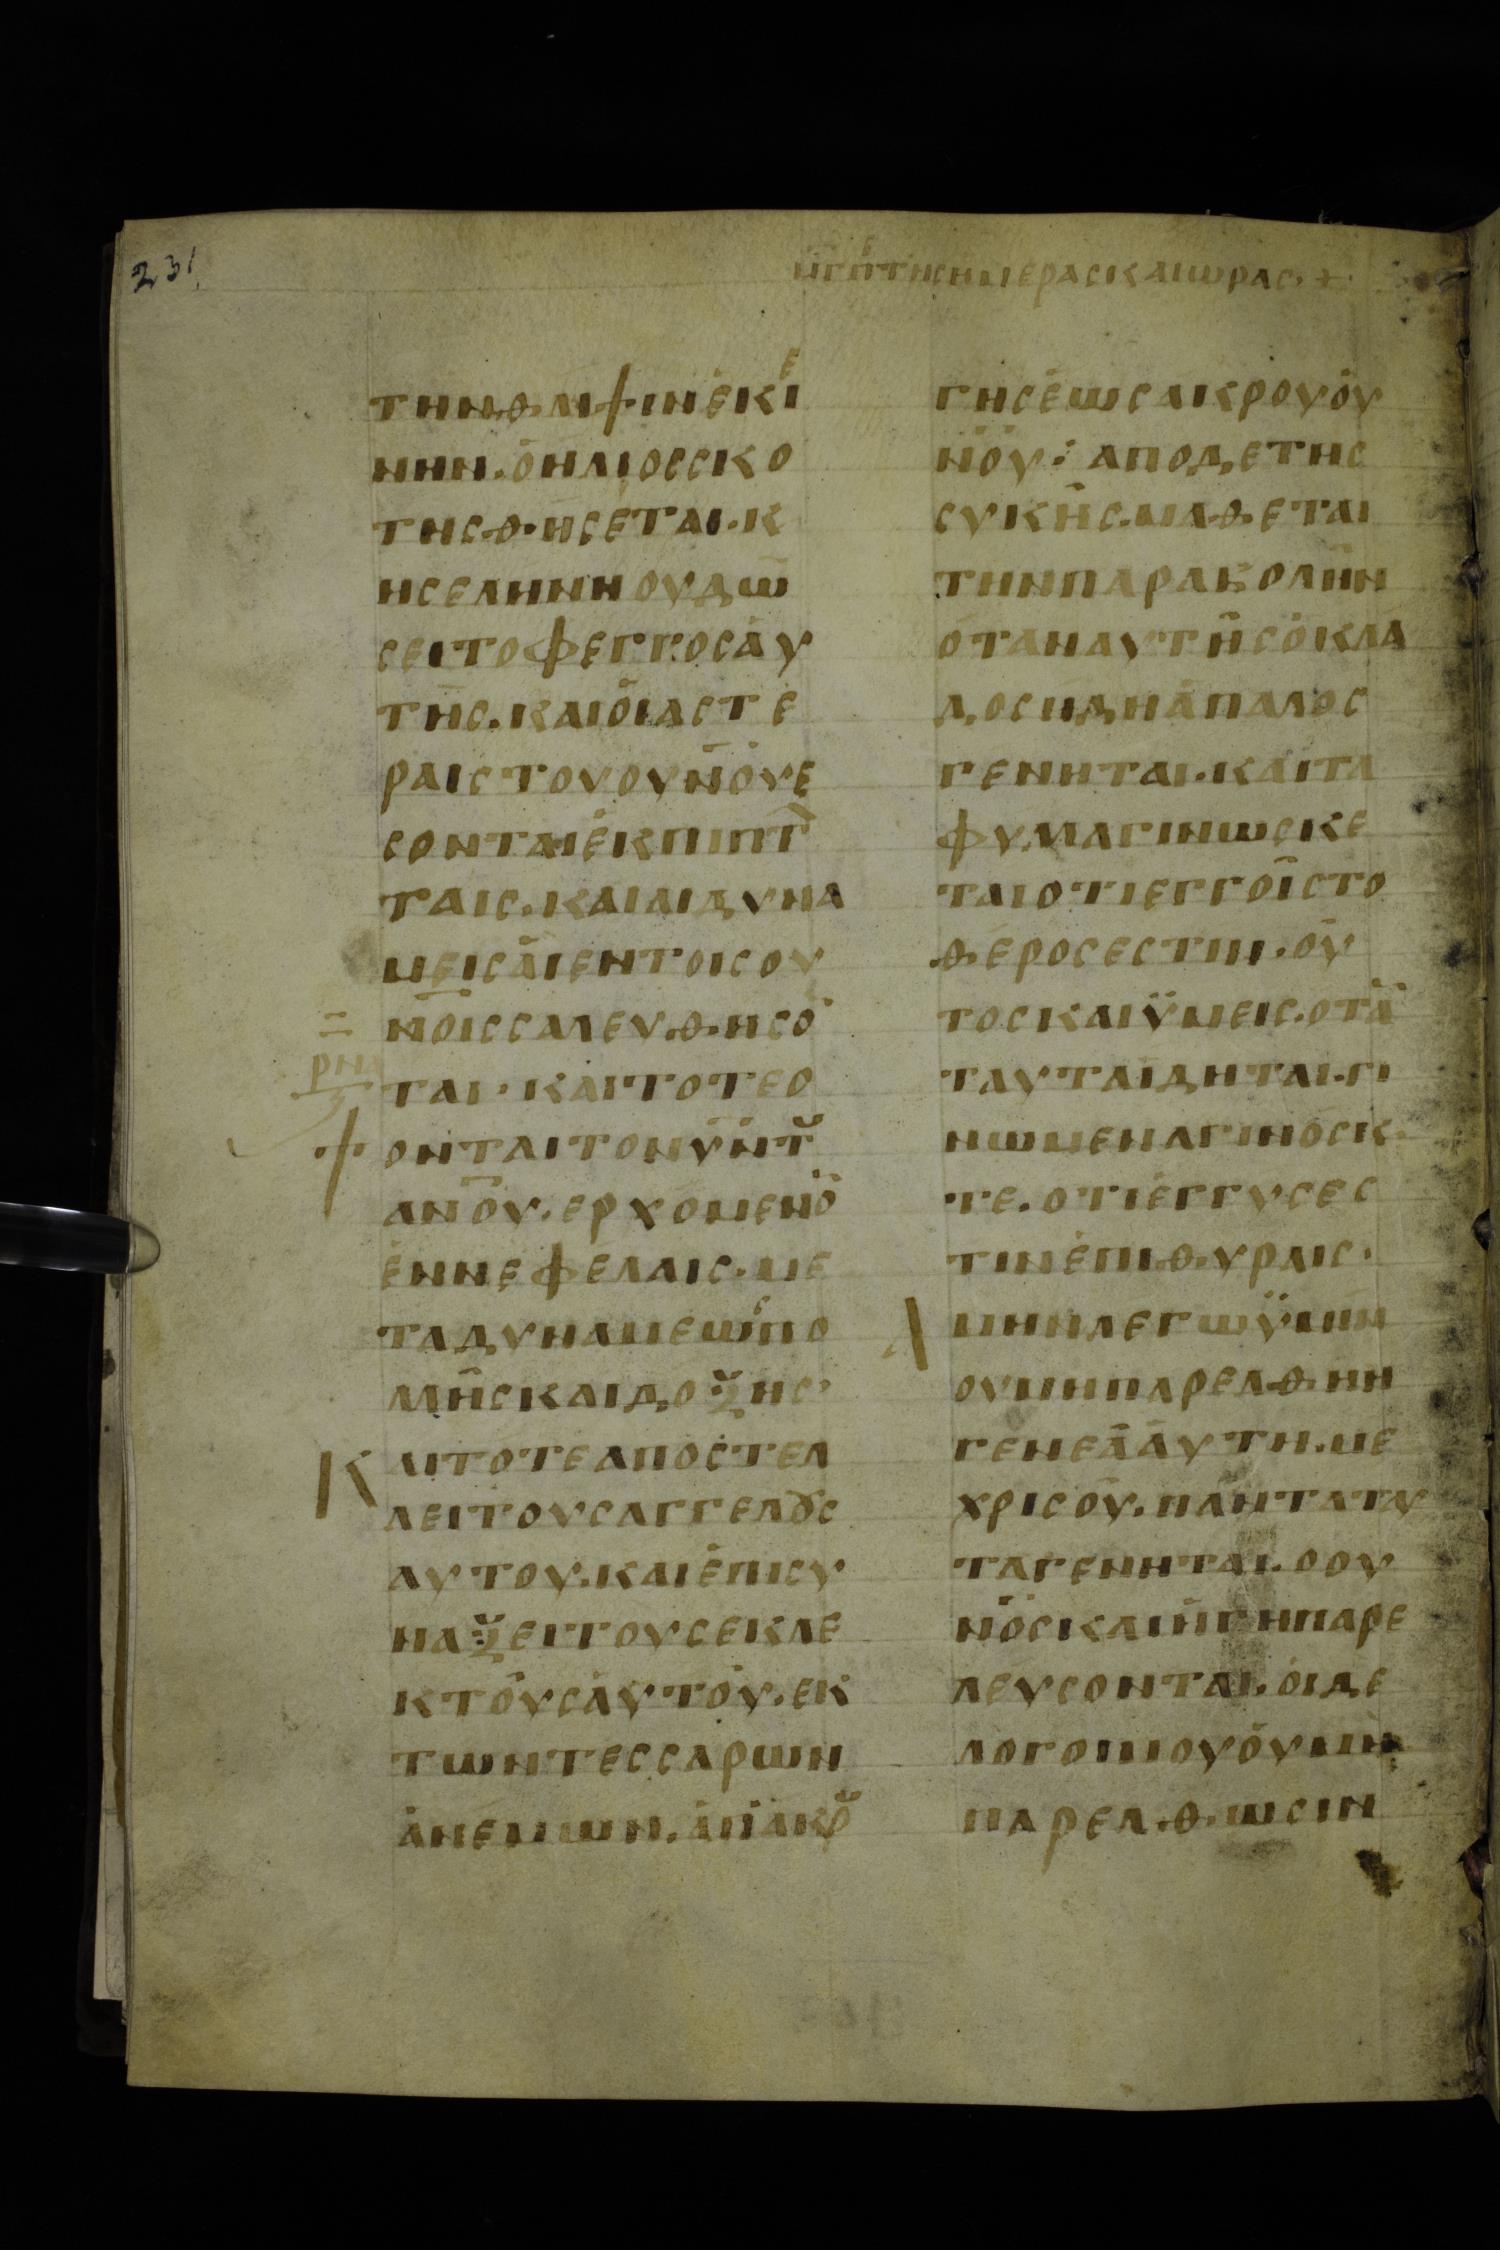 231
ΜΓ ΠΕ ΤΗΣ ΗΜΕΡΑΣ ΚΑΙ ΩΡΑΣ. +
ΤΗΝΘΛΙΨΙΝΕΚΙΕ
ΝΗΝ·ΟΗΛΙΟΣΣΚΟ
ΤΗΣΘΗΣΕΤΑΙ·Κ
ΗΣΕΛΗΝΗΟΥΔΩ
ΣΕΙΤΟΦΕΓΓΟΣΑΥ
ΤΗΣ·ΚΑΙΟΙΑΣΤΕ
ΡΑΙΣΤΟΥΟΥΝΟΥΕ
ΣΟΝΤΑΙΕΚΠΙΠΤ
ΤΑΙΣ·ΚΑΙΑΙΔΥΝΑ
ΜΕΙΣΑΙΕΝΤΟΙΣΟΥ
ΝΟΙΣΣΑΛΕΥΘΗΣΟ
ΡΝΑ
ΤΑΙ·ΚΑΙΤΟΤΕΟ
ΨΟΝΤΑΙΤΟΝΥΝΤ
ΑΝΟΥ·ΕΡΧΟΜΕΝΟ
ΕΝΝΕΦΕΛΑΙΣ·ΜΕ
ΤΑΔΥΝΑΜΕΩΣΠΟ
ΛΛΗΣΚΑΙΔΟΞΗΣ·
ΚΑΙΤΟΤΕΑΠΟΣΤΕΛ
ΛΕΙΤΟΥΣΑΓΓΕΛȢΣ
ΑΥΤΟΥ·ΚΑΙΕΠΙΣΥ
ΝΑΞΕΙΤΟΥΣΕΚΛΕ
ΚΤΟΥΣΑΥΤΟΥ·ΕΚ
ΤΩΝΤΕΣΣΑΡΩΝ
ΑΝΕΜΩΝ·ΑΠΑΚΡ
ΓΗΣΕΩΣΑΚΡΟΥΟΥ
ΝΟΥ: ΑΠΟΔΕΤΗΣ
ΣΥΚΗΣ·ΜΑΘΕΤΑΙ
ΤΗΝΠΑΡΑΒΟΛΗΝ
ΟΤΑΝΑΥΤΗΣΟΚΛΑ
ΔΟΣΗΔΗΑΠΑΛΟΣ
ΓΕΝΗΤΑΙ·ΚΑΙΤΑ
ΦΥΛΛΑΓΙΝΩΣΚΕ
ΤΑΙΟΤΙΕΓΓΟΙΣΤΟ
ΘΕΡΟΣΕΣΤΙΝ·ΟΥ
ΤΟΣΚΑΙΫΜΕΙΣ·ΟΤΑ
ΤΑΥΤΑΙΔΗΤΑΙ·ΓΙ
ΝΩΜΕΝΑΓΙΝΟΣΚ
ΤΕ·ΟΤΙΕΓΓΥΣΕΣ
ΤΙΝΕΠΙΘΥΡΑΙΣ·
ΑΜΗΝΛΕΓΩΫΜΙΝ
ΟΥΜΗΠΑΡΕΛΘΗΗ
ΓΕΝΕΑΑΥΤΗ·ΜΕ
ΧΡΙΣΟΥ·ΠΑΝΤΑΤΑΥ
ΤΑΓΕΝΗΤΑΙ·ΟΟΥ
ΝΟΣΚΑΙΗΓΗΠΑΡΕ
ΛΕΥΣΟΝΤΑΙ·ΟΙΔΕ
ΛΟΓΟΙΜΟΥΟΥΜΗ
ΠΑΡΕΛΘΩΣΙΝ